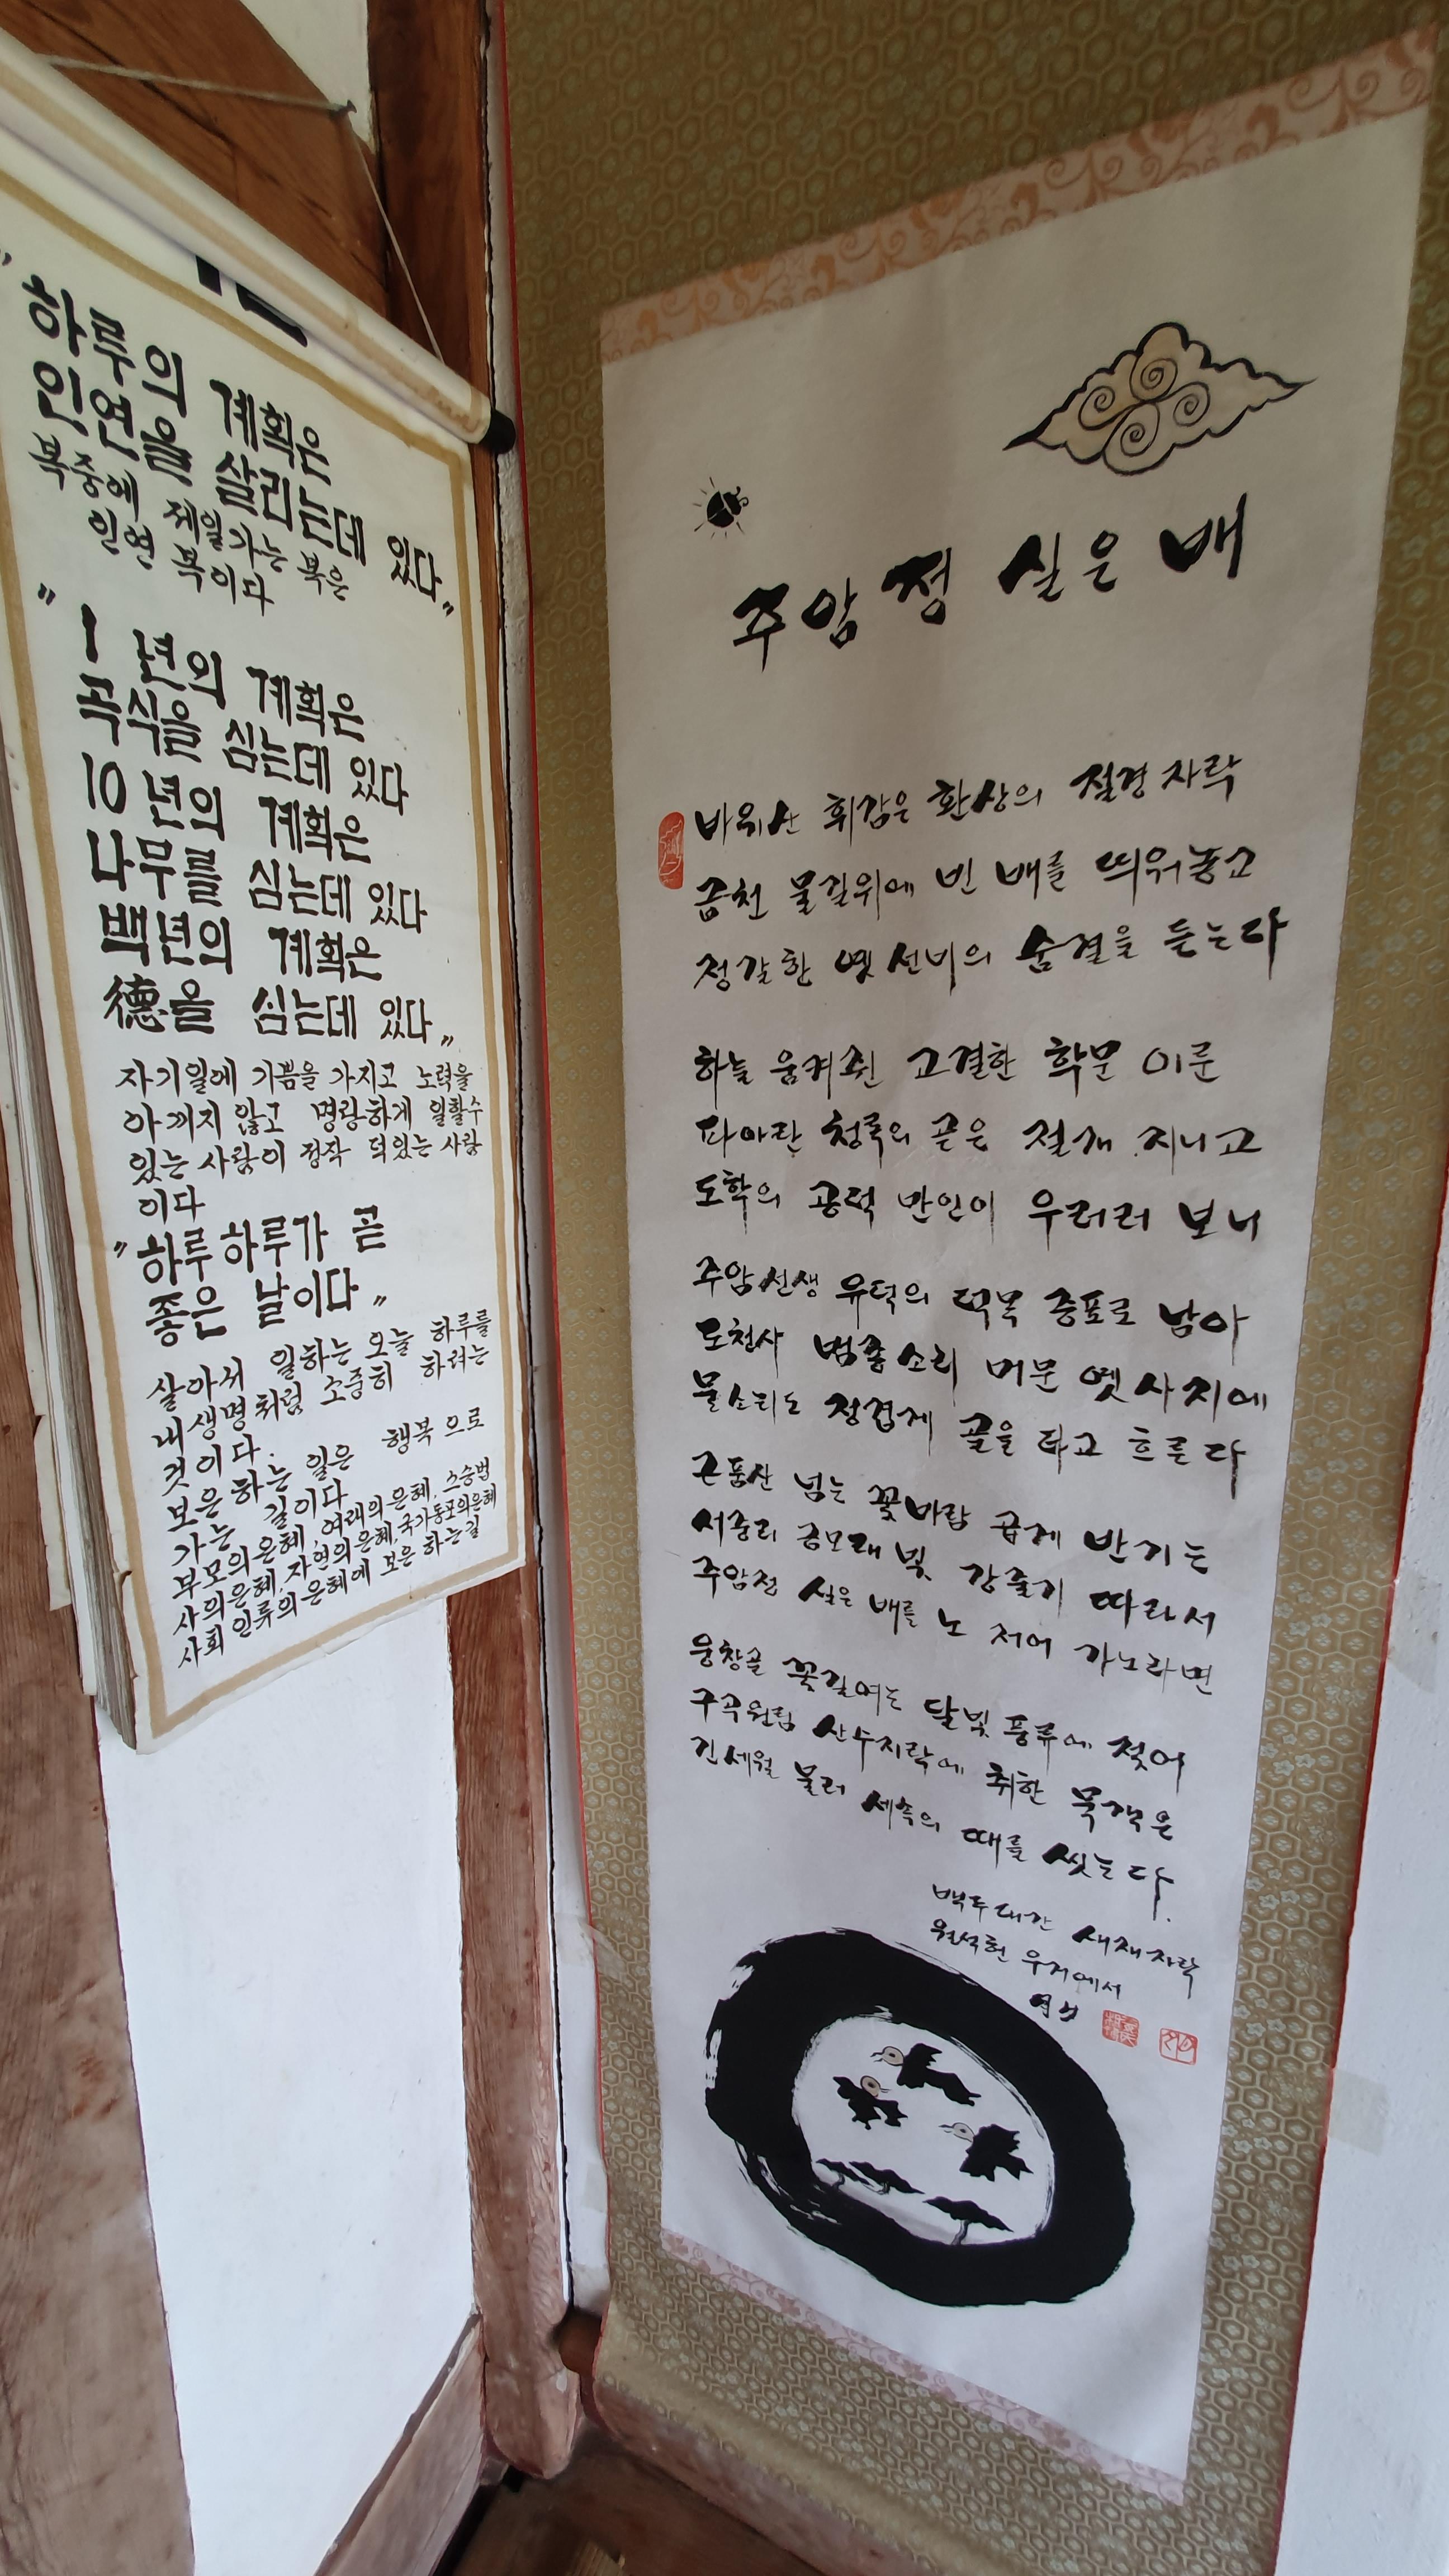 "하루의 계획은
인연을 살리는데 있다"
복중에 제일가는 복은
인연 복이다
"1년의 계획은
곡식을 심는데 있다
10년의 계획은
나무를 심는데 있다
백년의 계획은
德을 심는데 있다"
자기일에 기쁨을 가지고 노력을
아끼지 않고 명랑하게 일할수
있는 사람이 정작 덕있는 사람
이다
"하루하루가 곧
좋은 날이다"
살아서 일하는 오늘 하루를
내생명처럼 소중히 하려는
것이다.
보은하는 일은 행복으로
가는 길이다
부모의은혜, 여래의은혜, 스승법
사의은혜, 자연의은혜, 국가동포의은혜
사회 인류의은혜에 보은 하는길
주암정 실은 배
바위산 휘감은 환상의 절경 자락
금천 물길위에 빈 배를 띄워놓고
정갈한 옛 선비의 숨결을 듣는다
하늘 움켜쥔 고결한 학문 이룬
파아란 청록의 곧은 절개 지니고
도학의 공덕 만인이 우러러 보니
주암선생 유덕의 덕목 증표로 남아
도천사 범종소리 머문 옛 사지에
물소리도 정겹게 골을 타고 흐른다
근품산 넘는 꽃바람 곱게 반기는
서중리 금모래 빛 강줄기 따라서
주암정 실은 배를 노 저어 가노라면
웅창골 꽃길여는 달빛 풍류에 젖어
구곡원림 산수지락에 취한 묵객은
긴세월 불러 세속의 때를 씻는다.
백두대간 새재자락
원석헌 우거에서